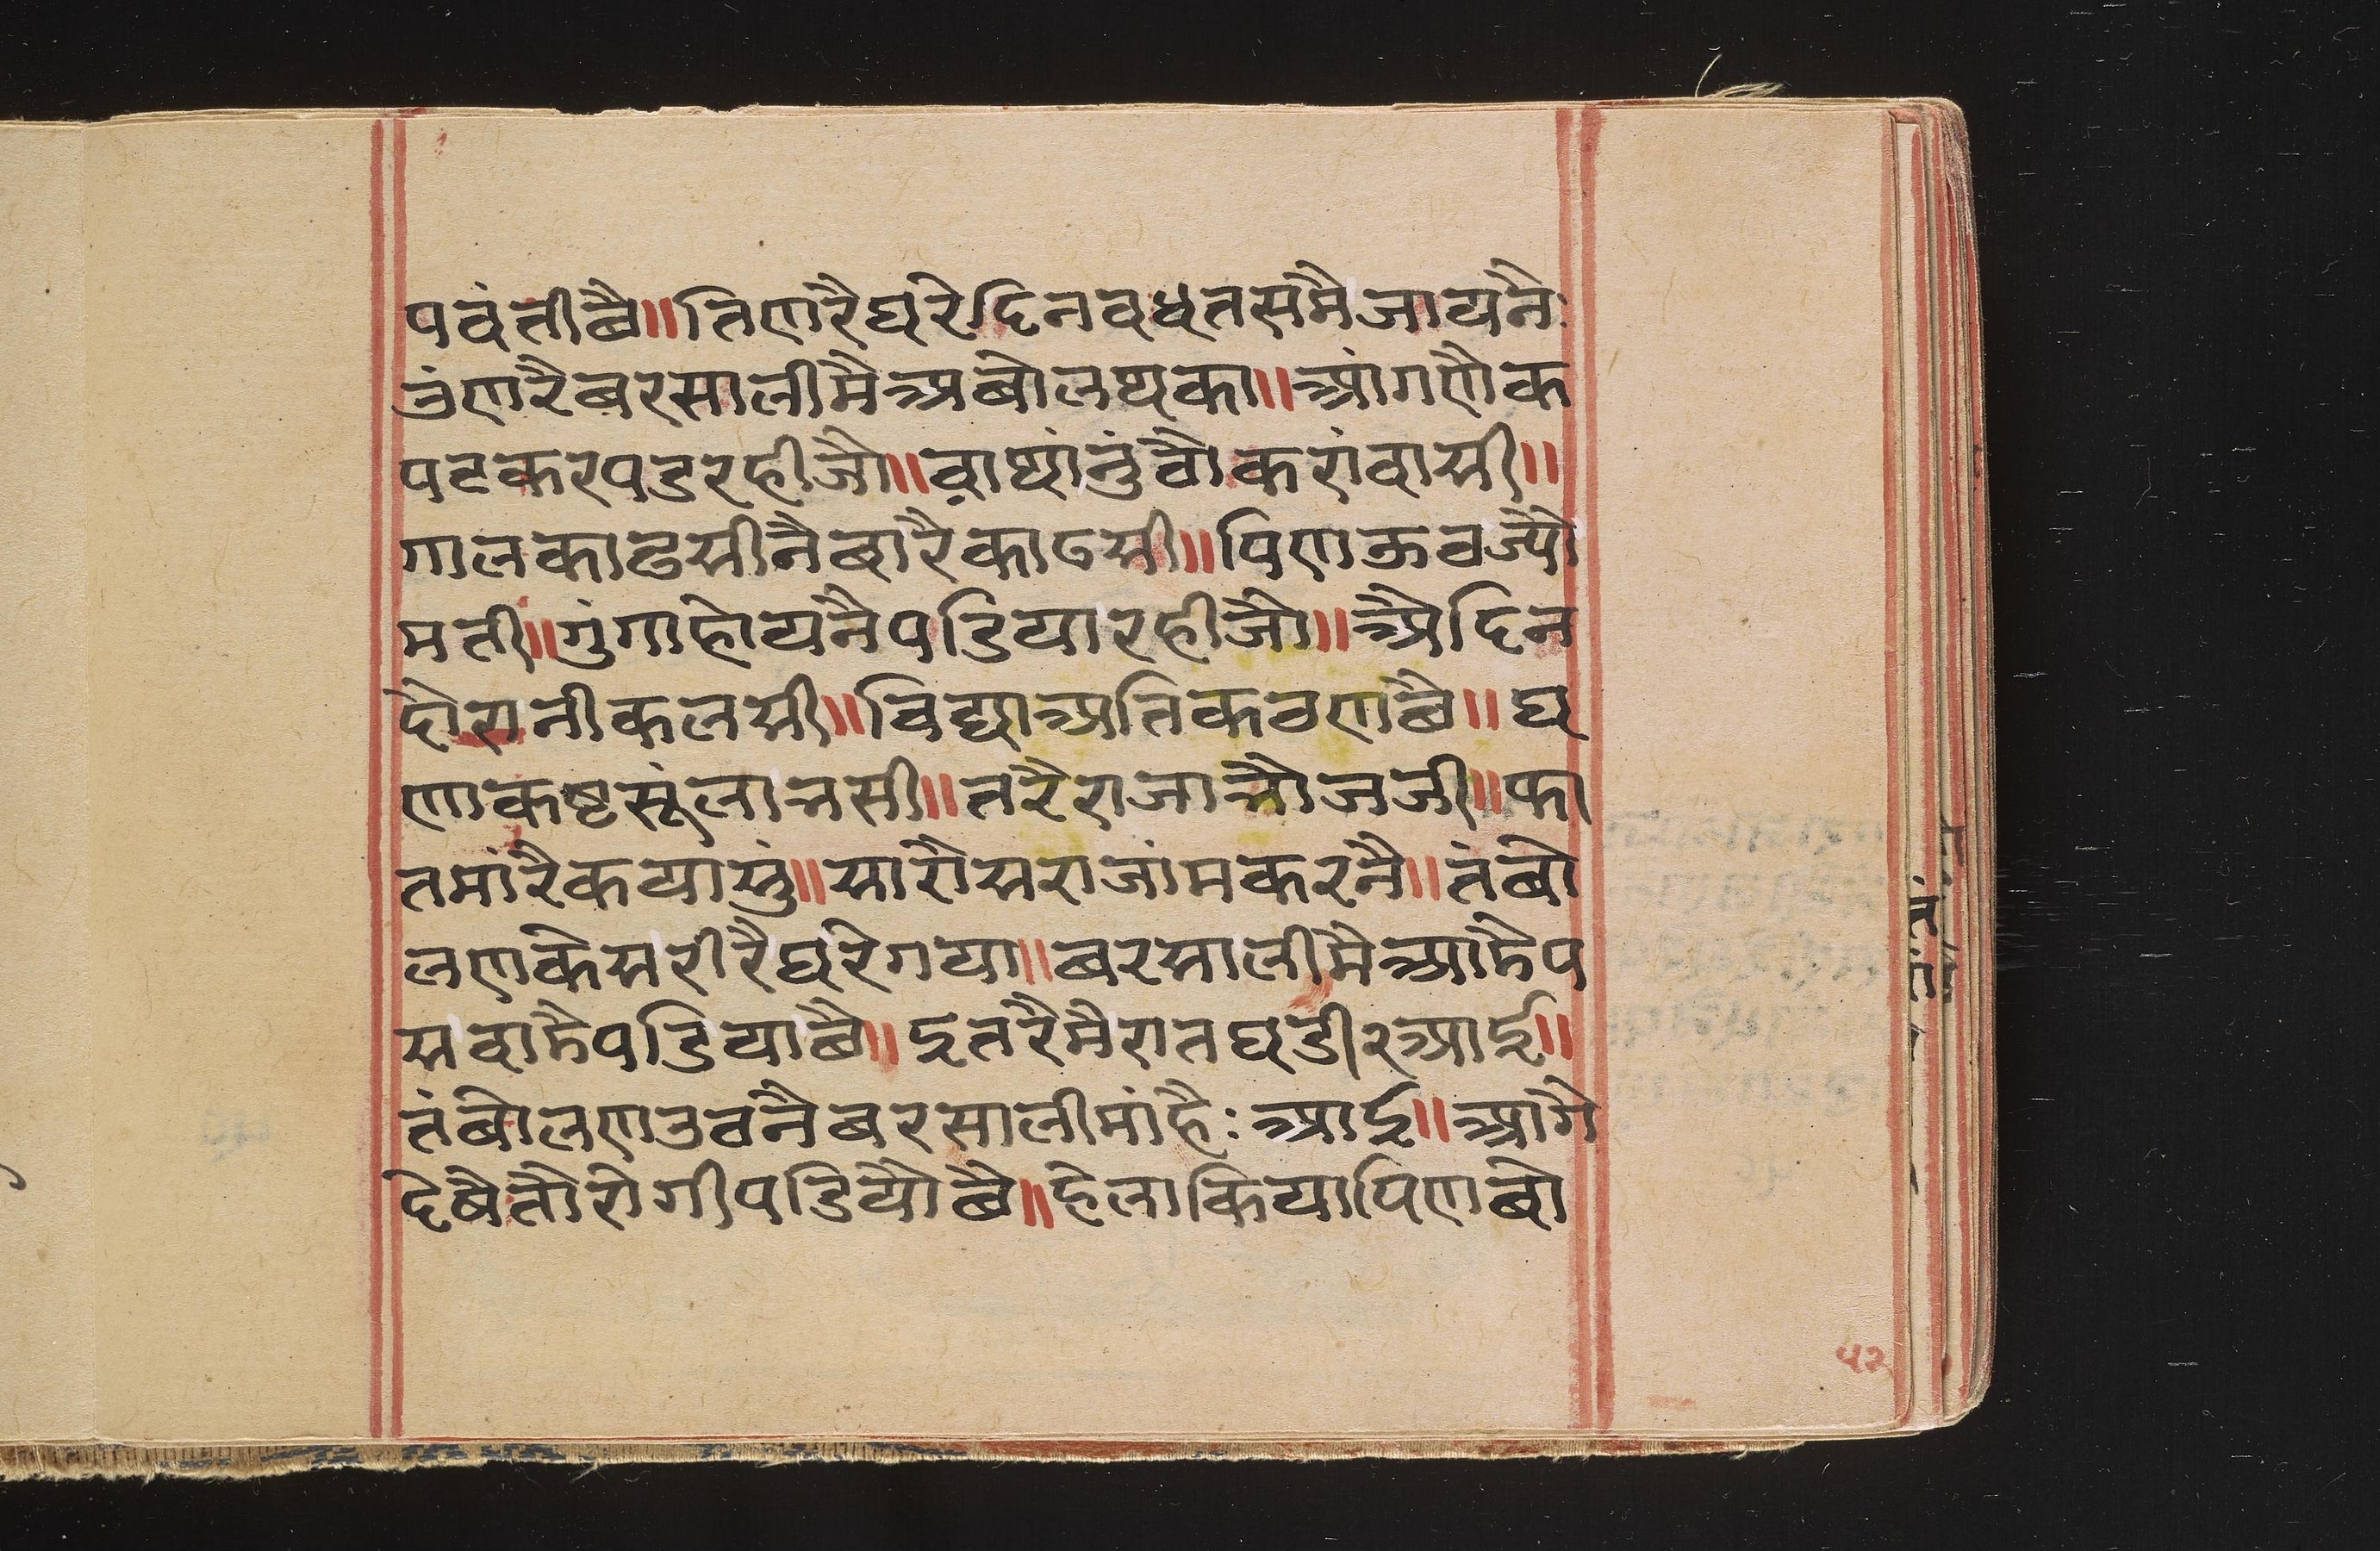 पवंतीछै॥तिणरैघरेदिनवधतसमैजायनैः
उंणरैबरसालीमैअबोलथका॥आंगणैक
पटकरपडरहीजौ॥वाथांनुंवौकरांवासी॥
गालकाढसीनैबारैकाढसी॥पिणऊवज्यौ
मती॥गुंगाहोयनैपडियारहीजौ॥औदिन
दोरानीकलसी॥विद्याअतिकठणछै॥घ
णाकष्टसूंलानसी॥तरैराजाभौजजी॥फा
तमांरैकयासुं॥सारौसराजांमकरनै॥तंबो
लणकेसरीरैघरेगया॥बरसालीमैआडैप
सवाडैपडियाछै॥इतरैमैरातघडी२आई॥
तंबोलणउठनैबरसालीमांहैःआई॥आगै
देषैतौरोगीपडियौछै॥हेलाकियापिणबो
५२